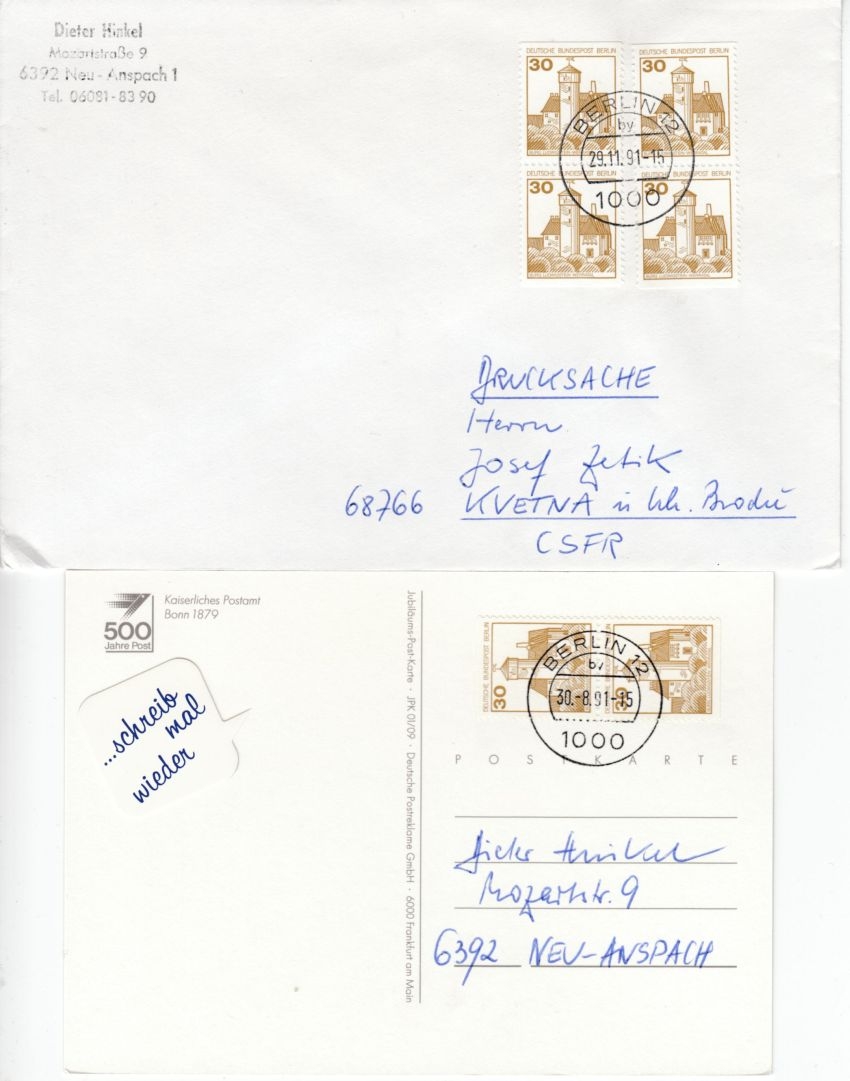 Dieter Hinkel
Mozartstraße 9
6392 Neu-Anspach 1
Tel. 06081-83 90
DEUTSCHE BUNDESPOST BERLIN
30
DEUTSCHE BUNDESPOST BERLIN
30
DEUTSCHE BUNDESPOST BERLIN
30
DEUTSCHE BUNDESPOST BERLIN
30
BERLIN 12
by
29.11.91-15
1000
DRUCKSACHE
Herrn
Josef
68766 KVETNA u Uh. Brodu
CSFR
500
Jahre Post
Kaiserliches Postamt
Bonn 1879
...schreib
mal
wieder
Jubiläums-Post-Karte · JPK 01/09 · Deutsche Postreklame GmbH · 6000 Frankfurt am Main
DEUTSCHE BUNDESPOST BERLIN
30
DEUTSCHE BUNDESPOST BERLIN
30
BERLIN 12
by
30.-8.91-15
1000
POSTKARTE
Dieter Hinkel
Mozartstr. 9
6392 NEU-ANSPACH